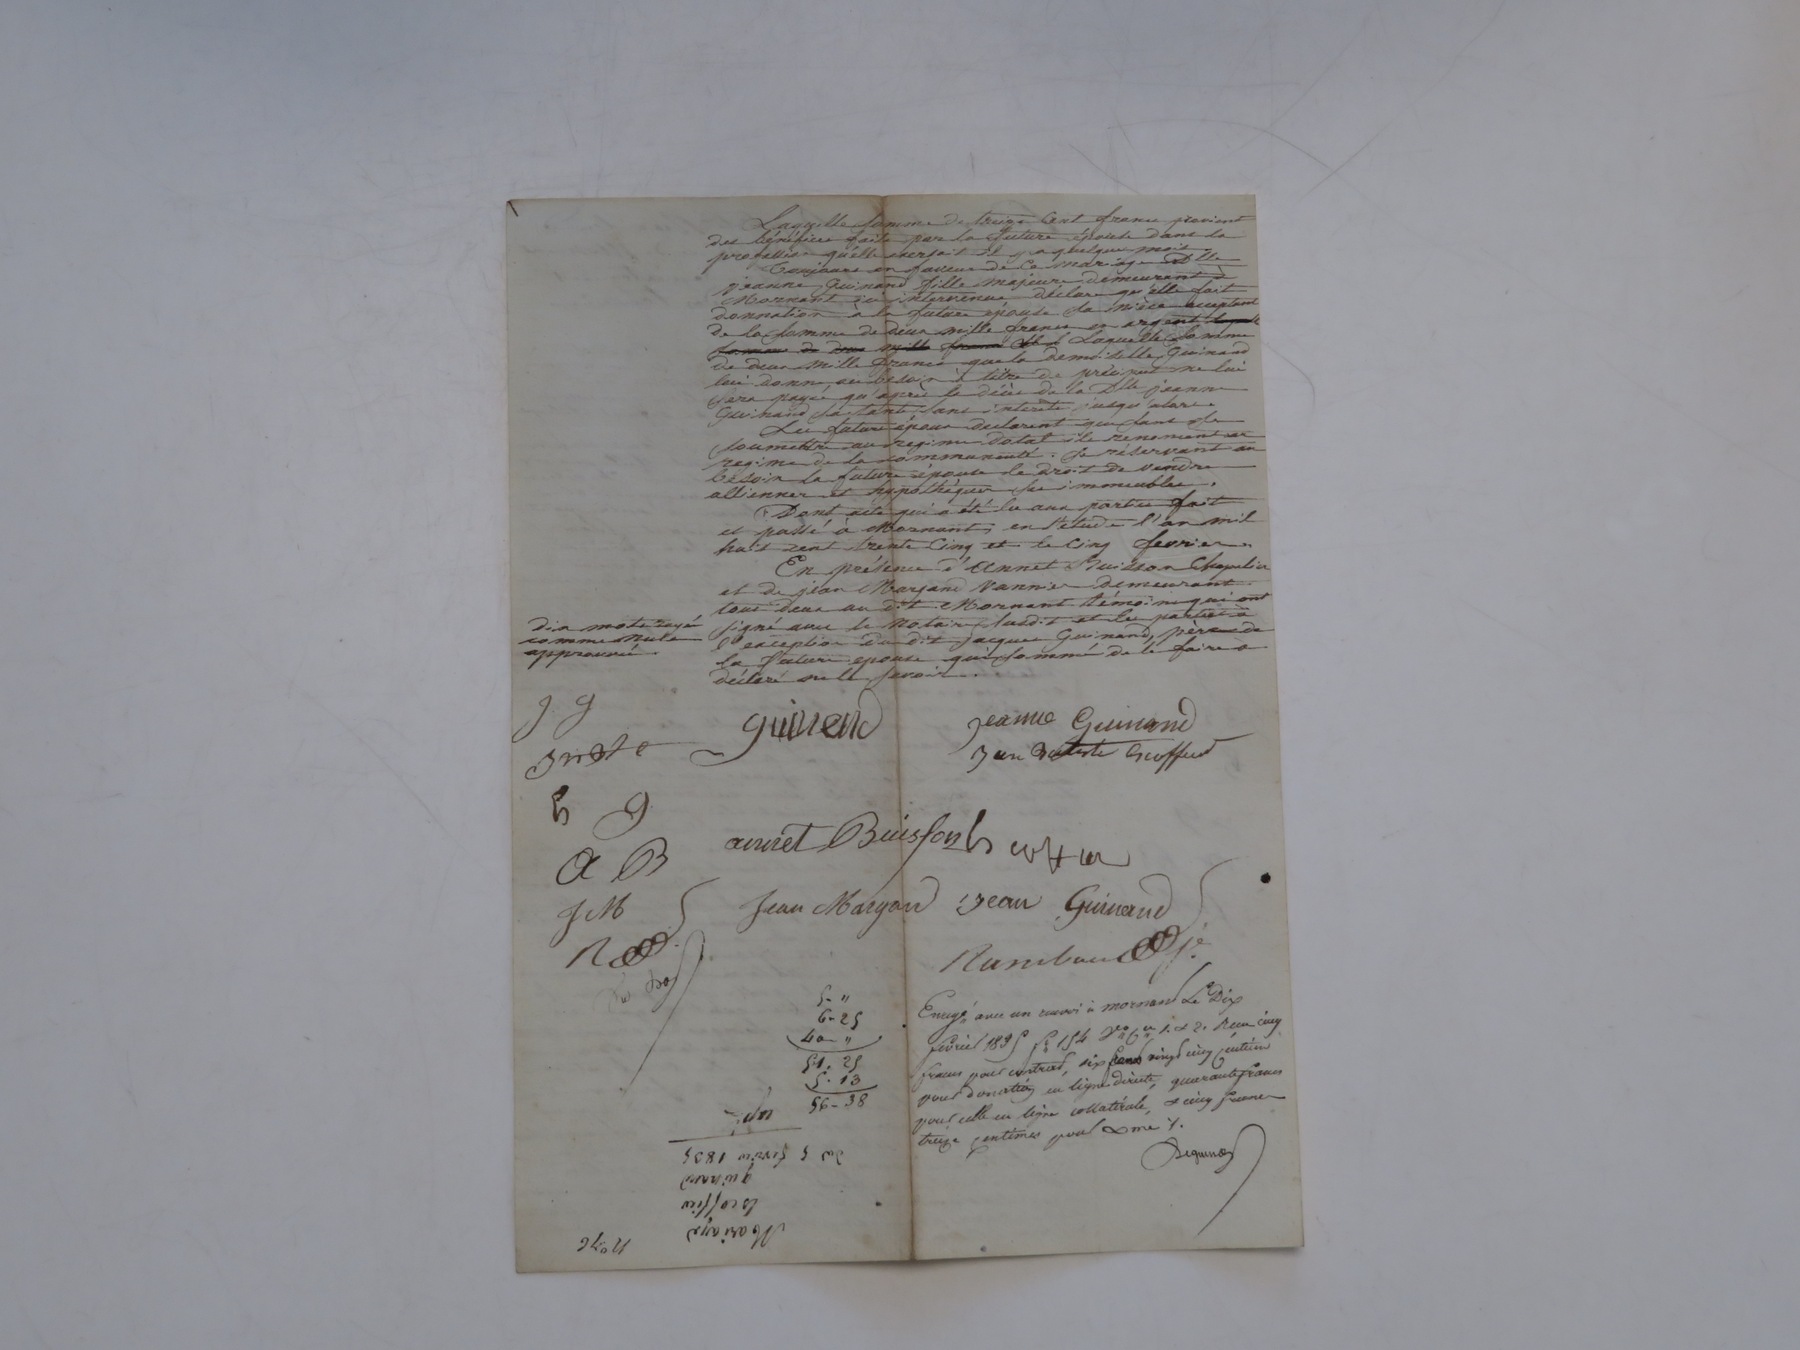 Laquelle somme de treize cent francs provient
des bénéfices faits par la future épouse dans la
profession qu'elle exersait il y a quelques mois.
Toujours en faveur de ce mariage Dlle
jeanne Guinand fille majeure demeurant à
Mornant ici intervenue déclare qu'elle fait
donnation à la future épouse sa nièce acceptant
de la somme de deux mille francs en argent laquelle
somme de deux mille francs Laquelle somme
de deux mille francs que la demoiselle Guinand
lui donne au besoin à titre de préciput ne lui
sera payé qu'après le décès de la Dlle jeanne
Guinand sa tante sans intérêts jusqu'alors.
Les futurs époux declarent que sans se
soumettre au regime dotal ils renoncent au
regime de la communauté. Se réservant au
besoin la future épouse le droit de vendre
alliener et hypothéquer ses immeubles.
Dont acte qui a été lu aux parties fait
et passé à Mornant, en l'etude l'an mil
huit cent trente cinq et le cinq fevrier.
En présence d'Annet Buisson Chapelier
et de jean Margand Vannier demeurant
tous deux au dit Mornant témoins qui ont
signé avec le Notaire susdit et les parties à
l'exception du dit Jacques Guinand, père de
la future epouse qui sommé de le faire a
déclaré ne le savoir.
dix mots rayé
comme nuls
approuvé.
J G
guinend
jeanne Guinand
Jean Batiste Escoffier
h g
A B
annet Buisson
J M
Jean Margand jean Guinand
R
Rambaud
Enregé avec un renvoi à mornant Le Dix
fevrier 1835 fo 154 Vo Ces 1 & 2. Reçu cinq
francs pour contrat, six francs vingt cinq centimes
pour donation en ligne directe, quarante francs
pour celle en ligne collatérale, & cinq francs
treize centimes pour Dxme %.
5 - "
6 - 25
40 - "
51. 25
5. 13
56 - 38
du 5 fevrier 1835
Mariage
Escoffier
guinand
No 76